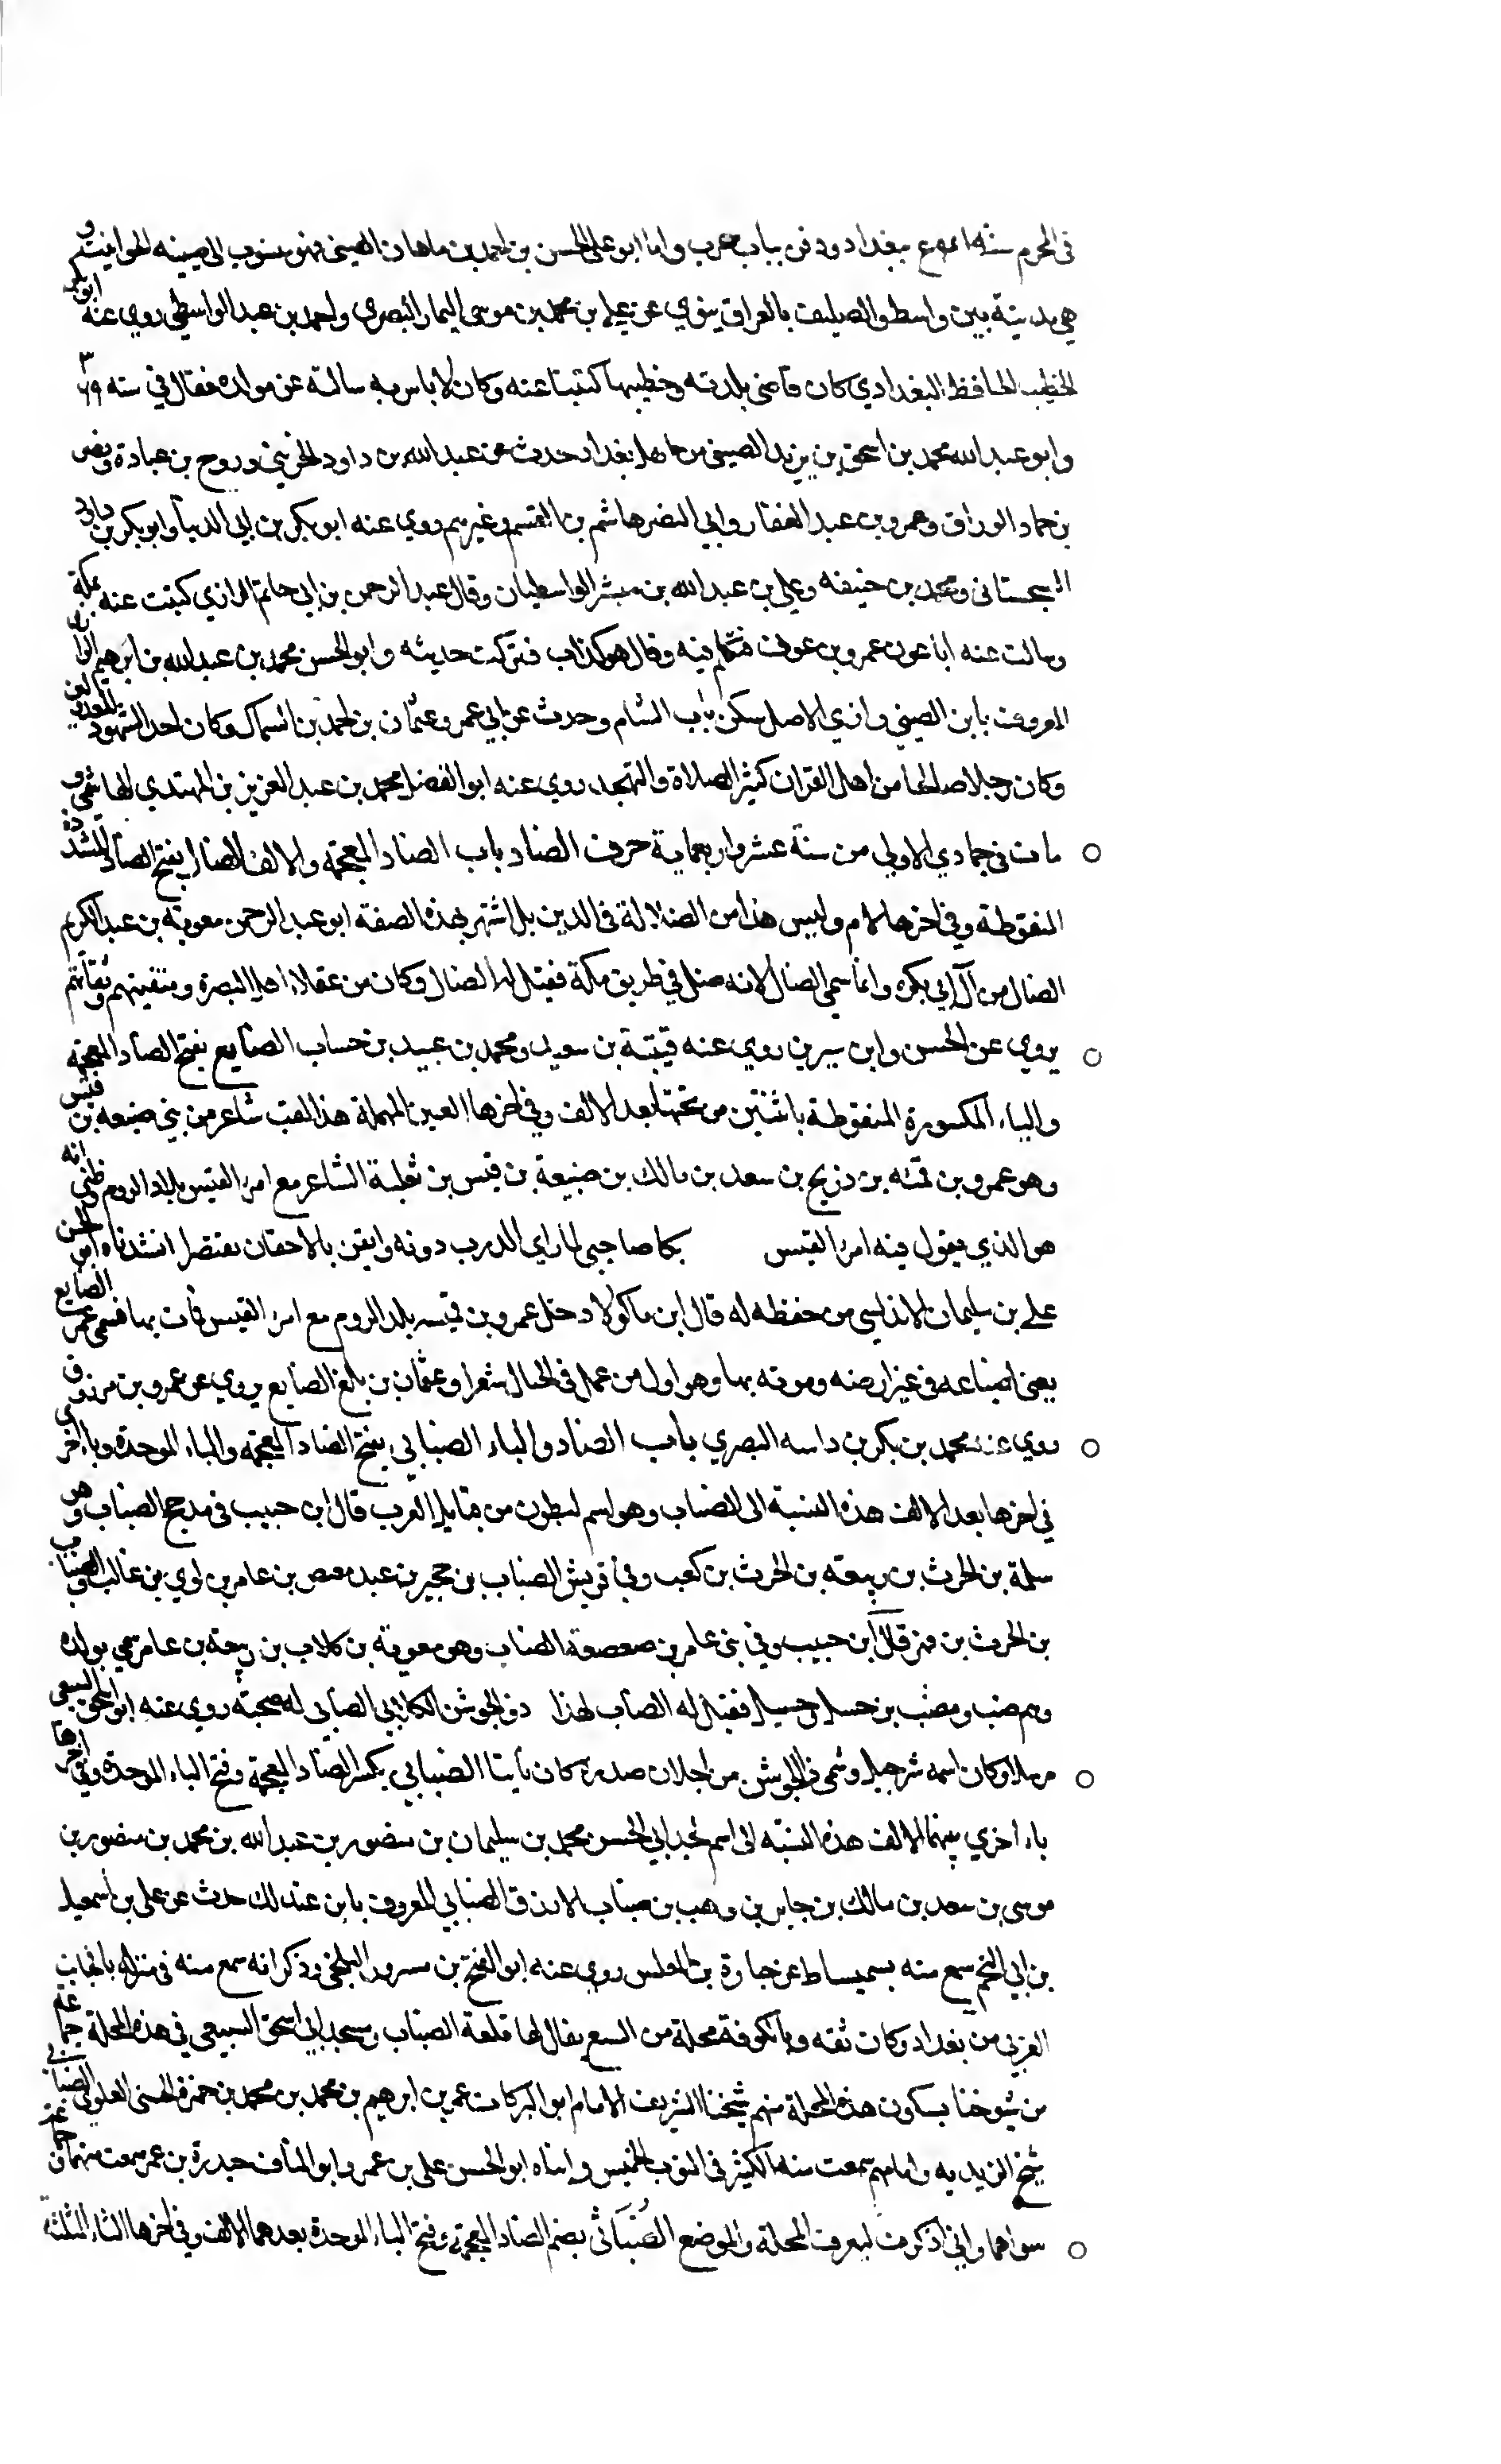 في المحرم سنة ببغداد ودفن بباب حرب واما ابو علي الحسن بن احمد بن ماهان الصيني فهو منسوب الى صينية الحوانيت و
هي مدينة بين واسط والصليق بالعراق يروي عن علي بن محمد بن موسى التمار البصري واحمد بن عبد الواسطي روى عنه ابو بكر
الخطيب الحافظ البغدادي كان قاضي بلدته وخطيبها كتبنا عنه وكان لا باس به سالته عن مولده فقال في سنه ٣٦٩
وابو عبد الله محمد بن اسحق بن يزيد الصيني من اهل بغداد حدث عن عبد الله بن داود الخريبي وروح بن عبادة ونصر
بن حماد الوراق وعمرو بن عبد الغفار وابي النضر هاشم بن القسم وغيرهم روى عنه ابو بكر بن ابي الدنيا وابو بكر بن داود
السجستاني ومحمد بن حنيفه وعلي بن عبد الله بن مبشر الواسطيان وقال عبد الرحمن بن ابي حاتم الرازي كتبت عنه بمكة
وسالت عنه ابا عون عمرو بن عوف فتكلم فيه وقال هو كذاب فتركت حديثه وابو الحسن محمد بن عبد الله بن ابرهيم
المعروف بابن الصيني رازي الاصل سكن باب الشام وحدث عن ابي عمرو عثمان بن احمد بن السماك وكان احد الشهود المعدلين
وكان رجلا صالحا من اهل القران كثير الصلاة والتهجد روى عنه ابو الفضل محمد بن عبد العزيز بن المهتدي الهاشمي و
مات في جمادي الاولى من سنة عشر واربعماية حرف الضاد باب الضاد المعجمة والالف الضال بفتح الضاد المشددة
المنقوطة وفي اخرها لام وليس هذا من الضلالة في الدين بل اشتهر بهذه الصفة ابو عبد الرحمن معوية بن عبد الكريم
الضال من آل ابي بكره وانما سمي الضال لانه ضل في طريق مكة فقيل له الضال وكان من عقلاء اهل البصرة ومتقنيهم وثقاتهم
يروي عن الحسن وابن سيرين روى عنه قتيبة بن سعيد ومحمد بن عبيد بن حساب الضايع بفتح الضاد المعجمة
والياء المكسورة المنقوطة باثنتين من تحتها بعد الالف وفي اخرها العين المهملة هذا لقب شاعر من بني ضبيعه بن قيس
وهو عمرو بن قمئه بن ذريح بن سعد بن مالك بن ضبيعة بن قيس بن ثعلبة الشاعر مع امرئ القيس بلاد الروم وظني انه
هو الذي يقول فيه امرئ القيس بكا صاحبي لما راي الدرب دونه وايقن بالاحقان بقيصرا انشدناه ابو الحسن
علي بن سليمان الاندلسي من حفظه له قال ابن ماكولا دخل عمرو بن قميئه بلد الروم مع امرئ القيس فمات بها فسمي عمر الضايع
يعني لضياعه في غير ارضه وموته بها وهو اول من عمل في الخيال شعرا وعثمان بن بلغ الضايع يروي عن عمرو بن مرزوق
روى عنه محمد بن بكر بن داسه البصري باب الضاد والباء الضبابي بفتح الضاد المعجمة والباء الموحدة وباء اخرى
في اخرها بعد الالف هذه النسبة الى الضباب وهو اسم لبطون من قبايل العرب قال ابن حبيب في مذحج الضباب وهو
سلمة بن الحرث بن ربيعة بن الحرث بن كعب وفي قريش الضباب بن حجير بن عبد معيص بن عامر بن لوي بن غالب والضباب
بن الحرث بن فهر قال ابن حبيب وفي بني عامر بن صعصعة الضباب وهو معوية بن كلاب بن ربيعة بن عامر سمي بولده
وهم ضب ومضب بن حسل وحسيل فقيل له الضباب لهذا ذو الجوشن الكلابي الضبابي له صحبة روى عنه ابو اسحق السبيعي
مرسلا وكان اسمه شرحبيل وسمي ذو الجوشن من اجل ان صدره كان ناتيا الضبابي بكسر الضاد المعجمة وفتح الباء الموحدة وفي اخرها
باء اخرى بينهما الالف هذه النسبة الى اسم الجد ابي الحسن محمد بن سليمان بن منصور بن عبد الله بن محمد بن منصور بن
موسى بن سعد بن مالك بن جابر بن وهب بن ضباب الازدي الضبابي المعروف بابن عندلك حدث عن علي بن اسمعيل
بن ابي النجم سمع منه بسميساط عن جبارة بن المغلس روى عنه ابو الفتح بن مسرور البلخي وذكر انه سمع منه في منزله بالجانب
الغربي من بغداد وكان ثقه وبالكوفة محلة من السبيع يقال لها قلعة الضباب ومسجد ابي اسحق السبيعي في هذه المحلة جماعة
من شيوخنا يسكون هذه المحلة منهم شيخنا الشريف الامام ابو البركات عمر بن ابرهيم بن محمد بن محمد بن حمزة الحسني العلوي الضبابي
شيخ الزيديه وامامهم سمعت منه الكثير في النوب الخمس وابناه ابو الحسن علي بن عمر وابو المناقب حيدرة بن عمر سمعت منهما
سواهما واني ذكرت ليعرف المحلة والموضع الضُبَاثي بضم الضاد المعجمة وفتح الباء الموحدة بعدهما الالف وفي اخرها الثاء المثلثة